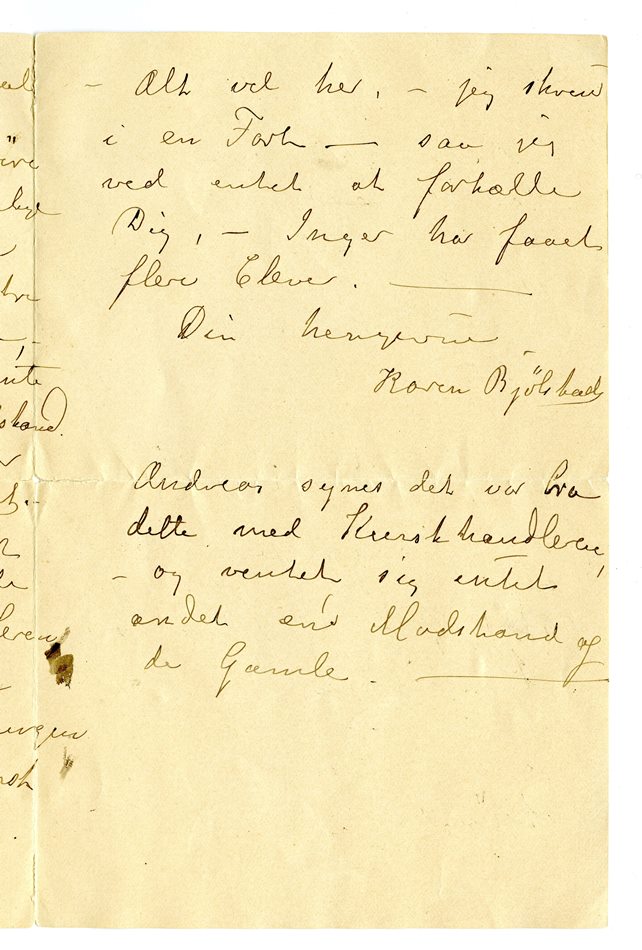 – Alt vel her, – jeg skriver
i en Fart – saa jeg
ved intet at fortælle
Dig, – Inger har faaet
flere Elever. –
Din hengivne
Karen Bjølstad
Andreas synes det var bra
dette med Kunsthandleren,
– og ventet sig intet
andet end Modstand af
de Gamle. –